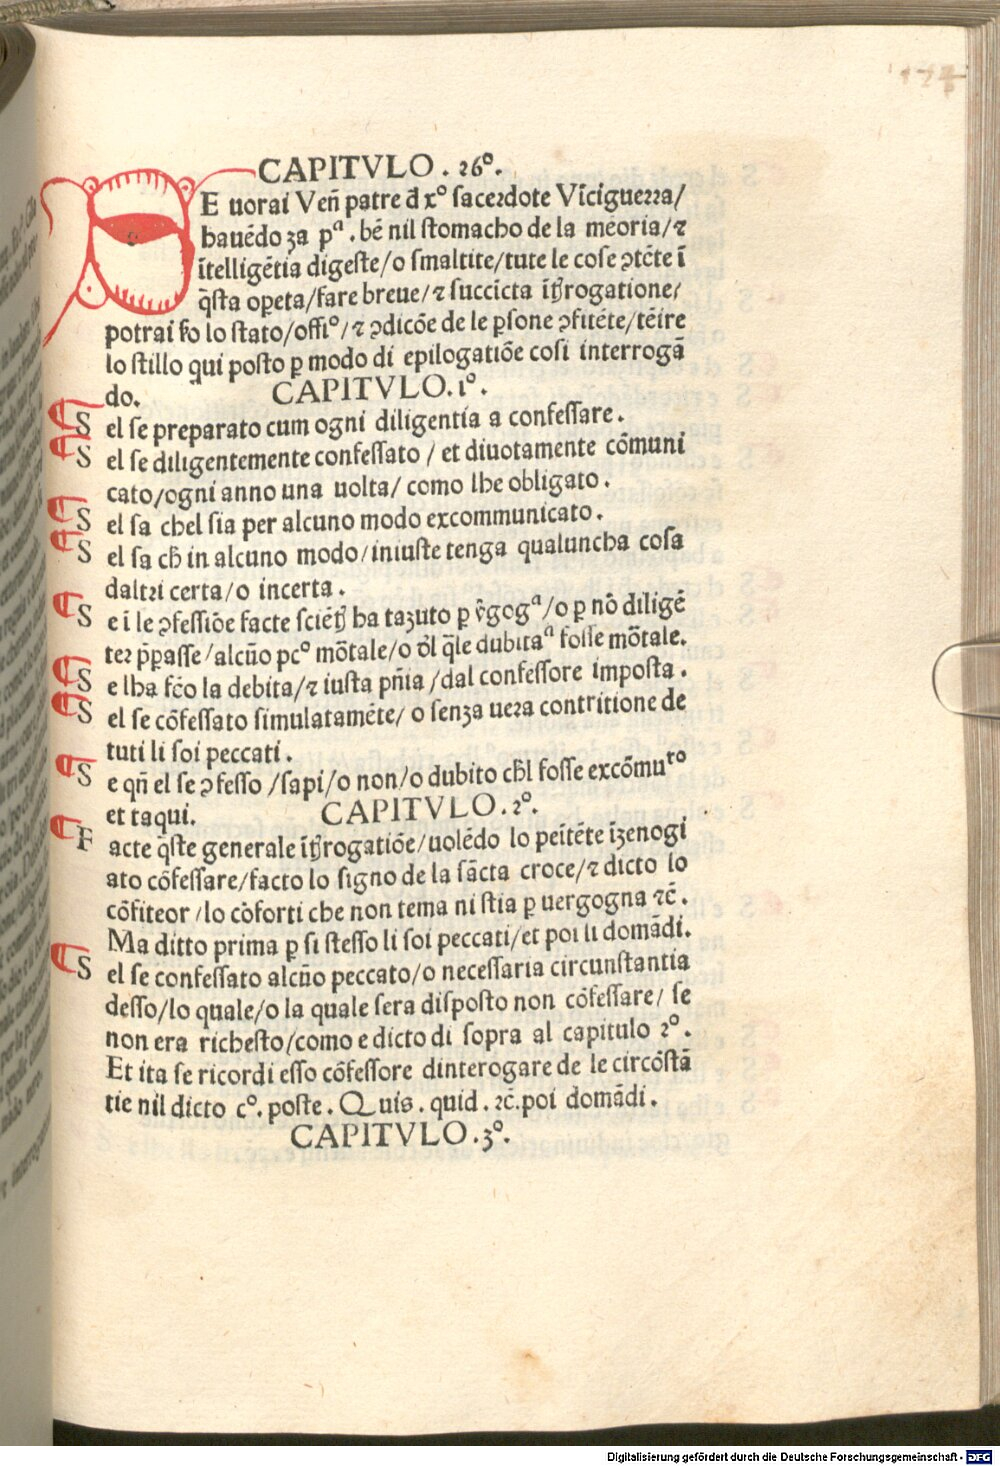 174
CAPITVLO . 26º.
SE uorai Ven̄ patre đ xº sacerdote Vĩciguerra/
hauẽdo za pª . bẽ nil stomacho de la meoria/ ⁊
ĩtelligẽtia digeste/o smaltite/tute le cose ↄtẽte ĩ
q̃sta opeta/fare breue/⁊ succicta ĩrogatione/
potrai ẜo lo stato/offiº/⁊ ↄdicõe de le ꝑsone ↄfitẽte/tẽire
lo stillo qui posto ꝑ modo di epilogatiõe cosi interrogã
do. CAPITVLO.1º.
¶ S el se preparato cum ogni diligentia a confessare.
¶ S el se diligentemente confessato / et diuotamente cõmuni
cato/ogni anno una uolta/ como lhe obligato.
¶ S el sa chel sia per alcuno modo excommunicato.
¶ S el sa ch̃ in alcuno modo/iniuste tenga qualuncha cosa
daltri certa/o incerta.
¶ S e i le ↄfessiõe facte sciẽt̃ ha tazuto ꝑ ṽgogª/o ꝑ nõ diligẽ
ter p̃passe/alcũo pcº mõtale/o đl q̃le dubitaª fosse mõtale.
¶ S e lha fc̃o la debita/⁊ iusta pñia/dal confessore imposta.
¶ S el se cõfessato simulatamẽte/ o senza uera contritione de
tuti li soi peccati.
¶ S e qñ el se ↄfesso /sapi/o non/o dubito ch̃l fosse excõmuᵗᵒ
et taqui. CAPITVLO.2º.
¶ F acte q̃ste generale ĩt̃rogatiõe/uolẽdo lo peĩtẽte ĩzenogi
ato cõfessare/facto lo signo de la sãcta croce/⁊ dicto lo
cõfiteor /lo cõforti che non tema ni stia ꝑ uergogna ⁊c̃.
Ma ditto prima ꝑ si stesso li soi peccati/et poi li domãdi.
¶ S el se confessato alcũo peccato/o necessaria circunstantia
desso/lo quale/o la quale sera disposto non cõfessare/ se
non era richesto/como e dicto di sopra al capitulo 2º.
Et ita se ricordi esso cõfessore dinterogare de le circõstã
tie nil dicto cº. poste. Quis. quid. ⁊c̃.poi domãdi.
CAPITVLO .3º.
Digitalisierung gefördert durch die Deutsche Forschungsgemeinschaft - DFG